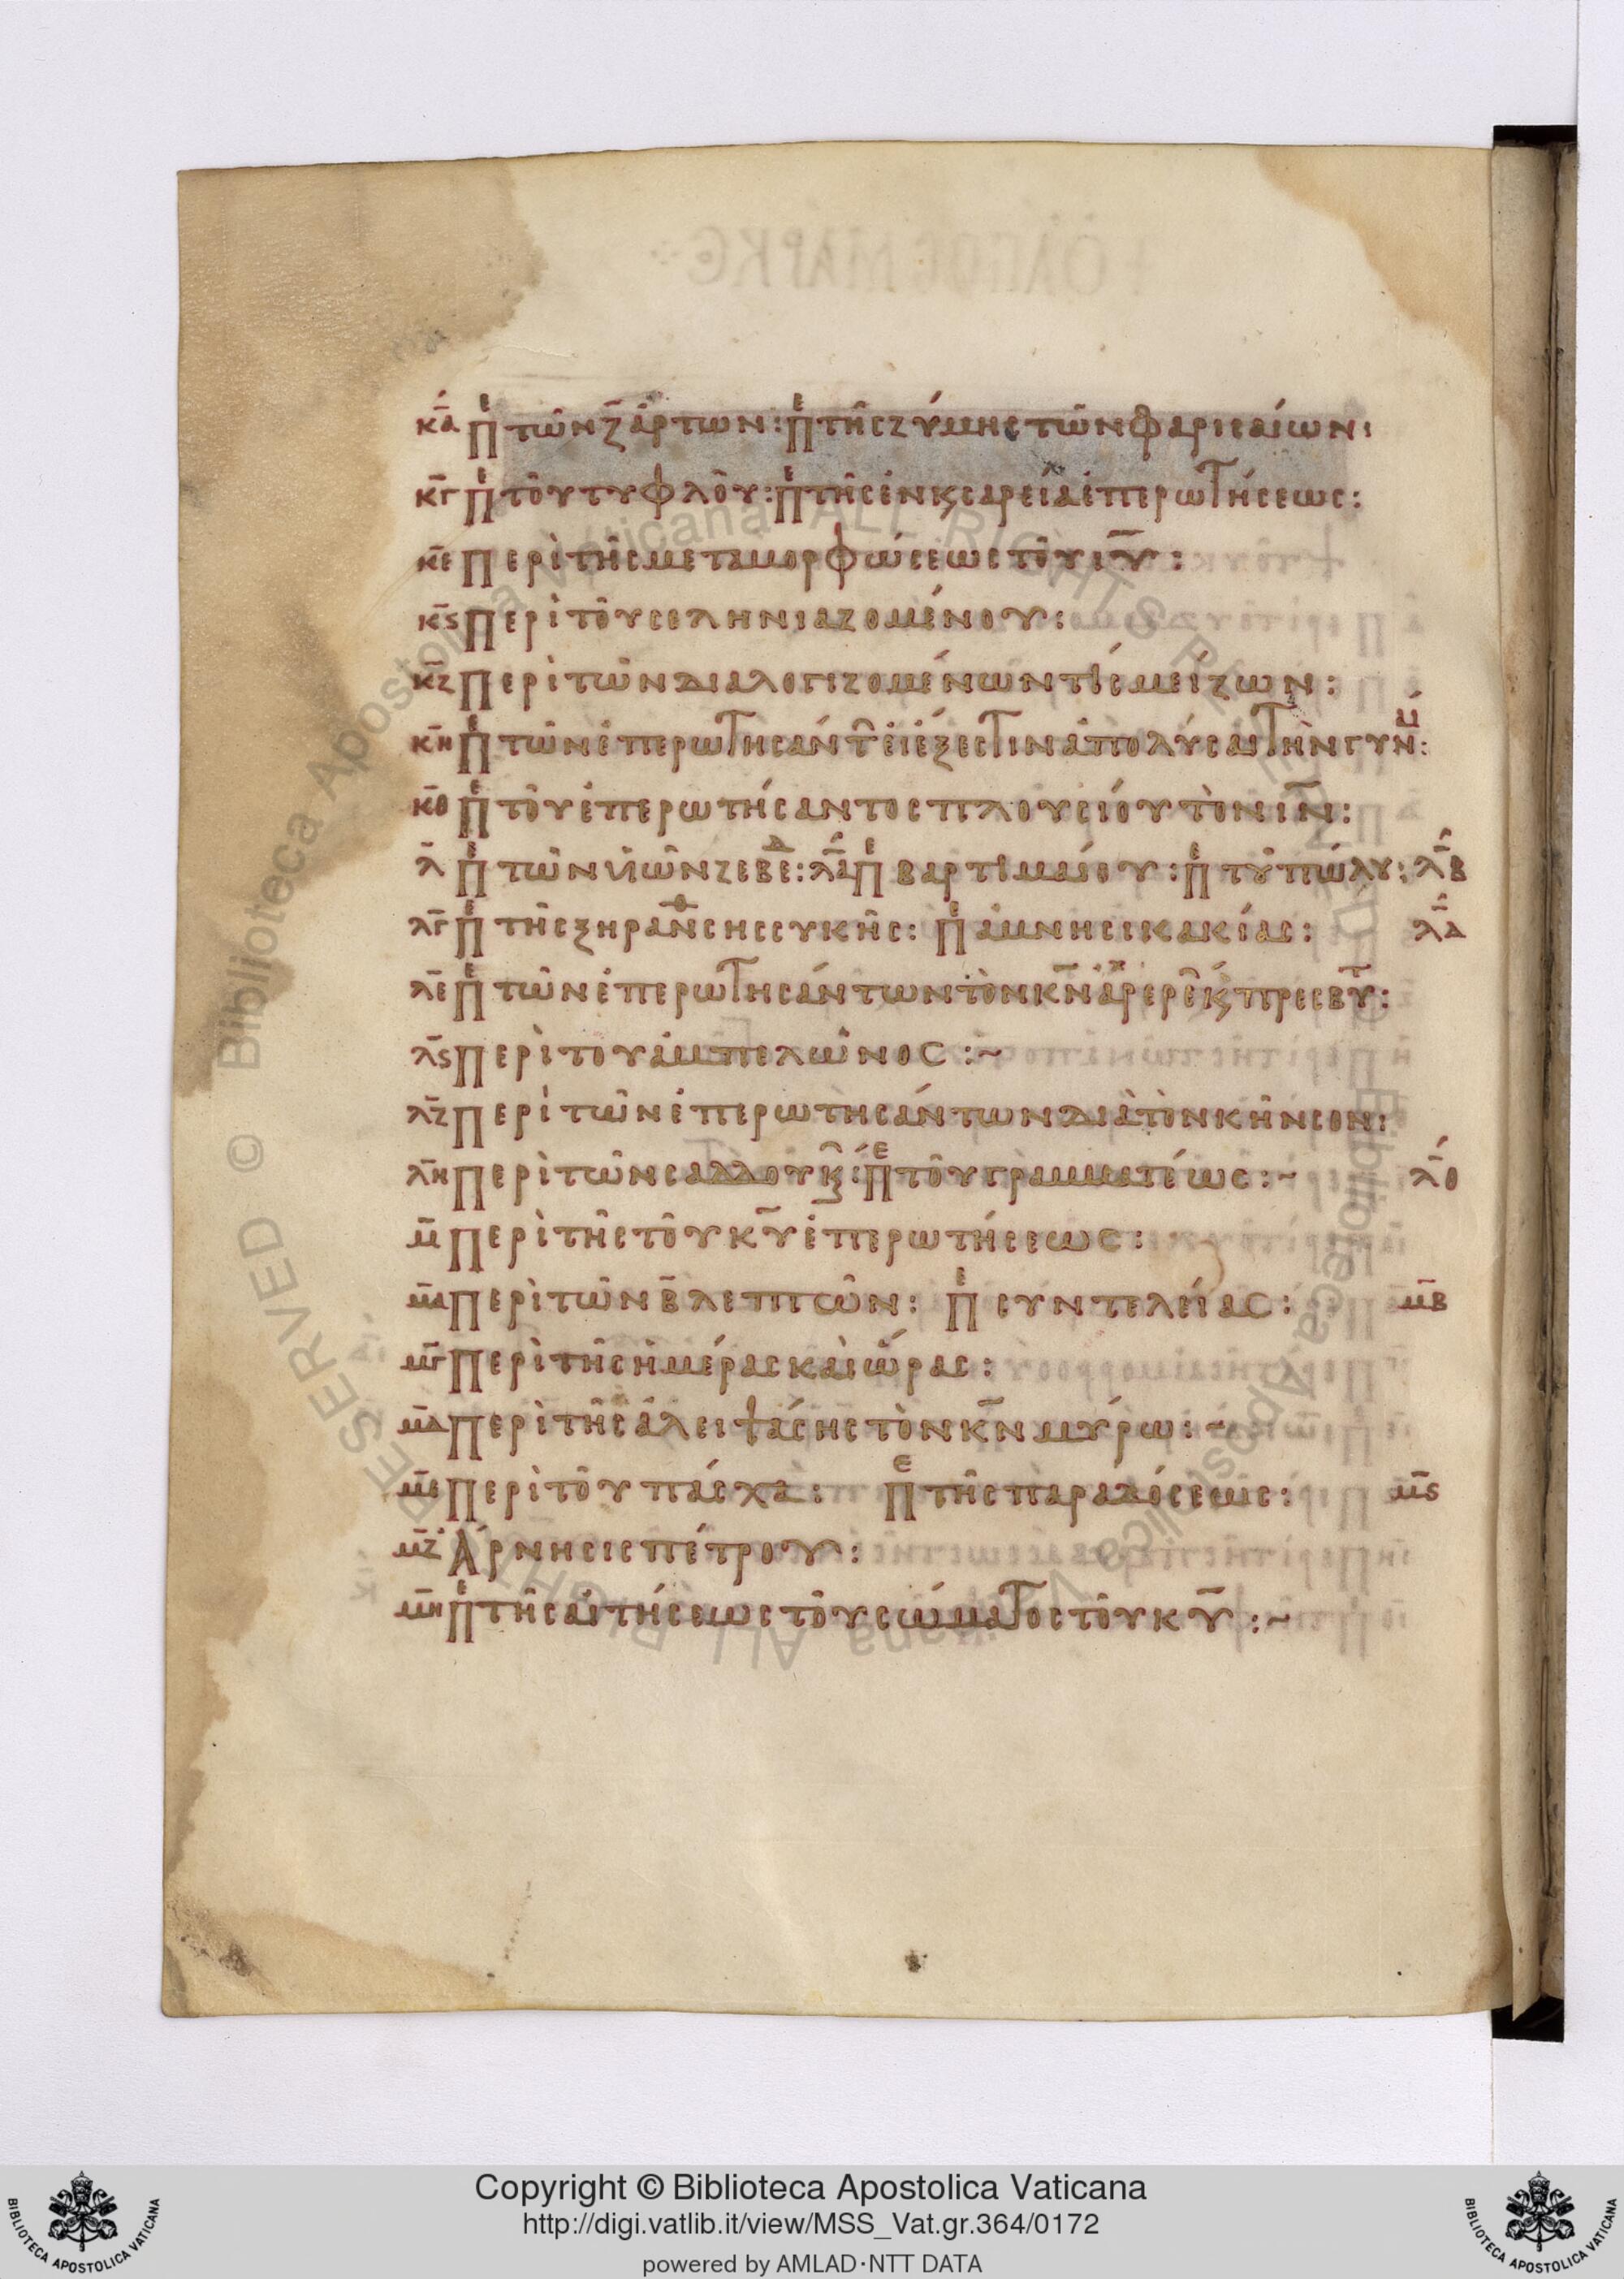 κ̅α̅ πε τῶν ζ̅ ἄρτων: πε τῆς ζύμης τῶν φαρισαίων:
κ̅γ̅ πε τοῦ τυφλοῦ: πε τῆς ἐν κεσαρεία ἐπερωτήσεως:
κ̅ε̅ περὶ τῆς μεταμορφώσεως τοῦ ι̅υ̅:
κ̅ϛ̅ περὶ τοῦ σεληνιαζομένου:
κ̅ζ̅ περὶ τῶν διαλογιζομένων τίς μείζων:
κ̅η̅ πε τῶν ἐπερωτησάντ εἰ ἔξεστιν ἀπολύσαι τὴν γυν:
κ̅θ̅ πε τοῦ ἐπερωτήσαντος πλουσίου τὸν ι̅ν̅:
λ̅ πε τῶν υἱῶν ζεβεδ: λ̅α̅ πε βαρτιμαίου: πε τοῦ πώλου: λ̅β̅
λ̅γ̅ πε τῆς ξηρανθσησ συκῆς: πε ἀμνησικακίας: λ̅δ̅
λ̅ε̅ πε τῶν ἐπερωτησάντων τὸν κ̅ν̅ ἀρχερε κ πρεσβυτ:
λ̅ϛ̅ περὶ του ἀμπελῶνος :~
λ̅ζ̅ περὶ τῶν ἐπερωτησάντων διὰ τὸν κῆνσον:
λ̅η̅ περὶ τῶν σαδδουκ: πε τοῦ γραμματέως :~ λ̅θ̅
μ̅ περὶ τῆς τοῦ κ̅υ̅ ἐπερωτήσεως:
μ̅α̅ περὶ τῶν β̅ λεπτῶν: πε συντελείας: μ̅β̅
μ̅γ̅ περὶ τῆς ἡμέρας καὶ ὥρας:
μ̅δ̅ περὶ τῆς ἀλειψάσης τὸν κ̅ν̅ μύρω :~
μ̅ε̅ περὶ τοῦ πάσχα: πε τῆς παραδόσεως: μ̅ϛ̅
μ̅ζ̅ Ἄρνησις πέτρου:
μ̅η̅ πε τῆς αἰτήσεως τοῦ σώματος τοῦ κ̅υ̅ :~
© Biblioteca Apostolica Vaticana ALL RIGHTS RESERVED
Copyright © Biblioteca Apostolica Vaticana
http://digi.vatlib.it/view/MSS_Vat.gr.364/0172
powered by AMLAD·NTT DATA
BIBLIOTECA APOSTOLICA VATICANA
BIBLIOTECA APOSTOLICA VATICANA